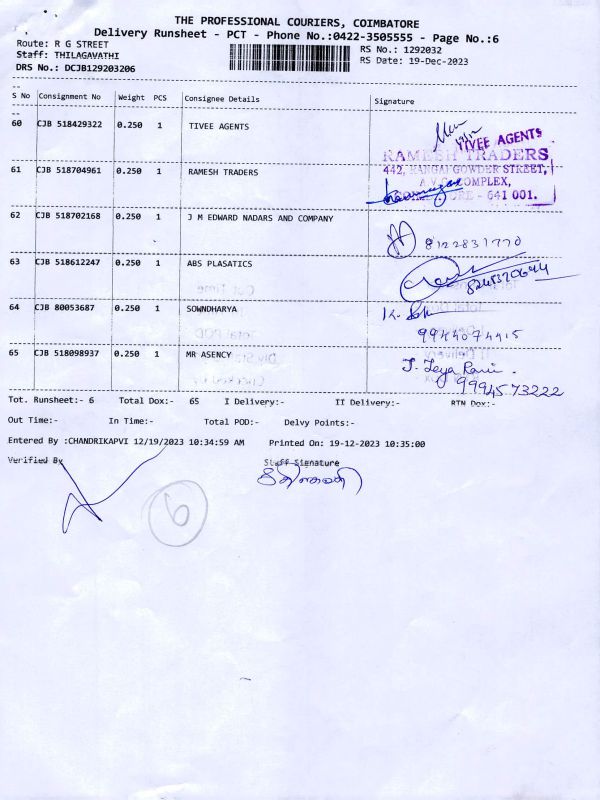 THE PROFESSIONAL COURIERS, COIMBATORE
Delivery Runsheet - PCT - Phone No.:0422-3505555 - Page No.:6
Route: R G STREET RS No.: 1292032
Staff: THILAGAVATHI RS Date: 19-Dec-2023
DRS No.: DCJB129203206
S No Consignment No Weight PCS Consignee Details Signature
60 CJB 518429322 0.250 1 TIVEE AGENTS
TIVEE AGENTS
RAMESH TRADERS
61 CJB 518704961 0.250 1 RAMESH TRADERS 442, RANGAI GOWDER STREET,
A.V.C. COMPLEX,
COIMBATORE - 641 001.
62 CJB 518702168 0.250 1 J M EDWARD NADARS AND COMPANY
8122831770
63 CJB 518612247 0.250 1 ABS PLASATICS
64 CJB 80053687 0.250 1 SOWNDHARYA
9944074415
65 CJB 518098937 0.250 1 MR ASENCY J. Jeya Rani.
9994573222
Tot. Runsheet:- 6 Total Dox:- 65 I Delivery:- II Delivery:- RTN Dox:-
Out Time:- In Time:- Total POD:- Delvy Points:-
Entered By :CHANDRIKAPVI 12/19/2023 10:34:59 AM Printed On: 19-12-2023 10:35:00
Verified By Staff Signature
திலகவதி
6